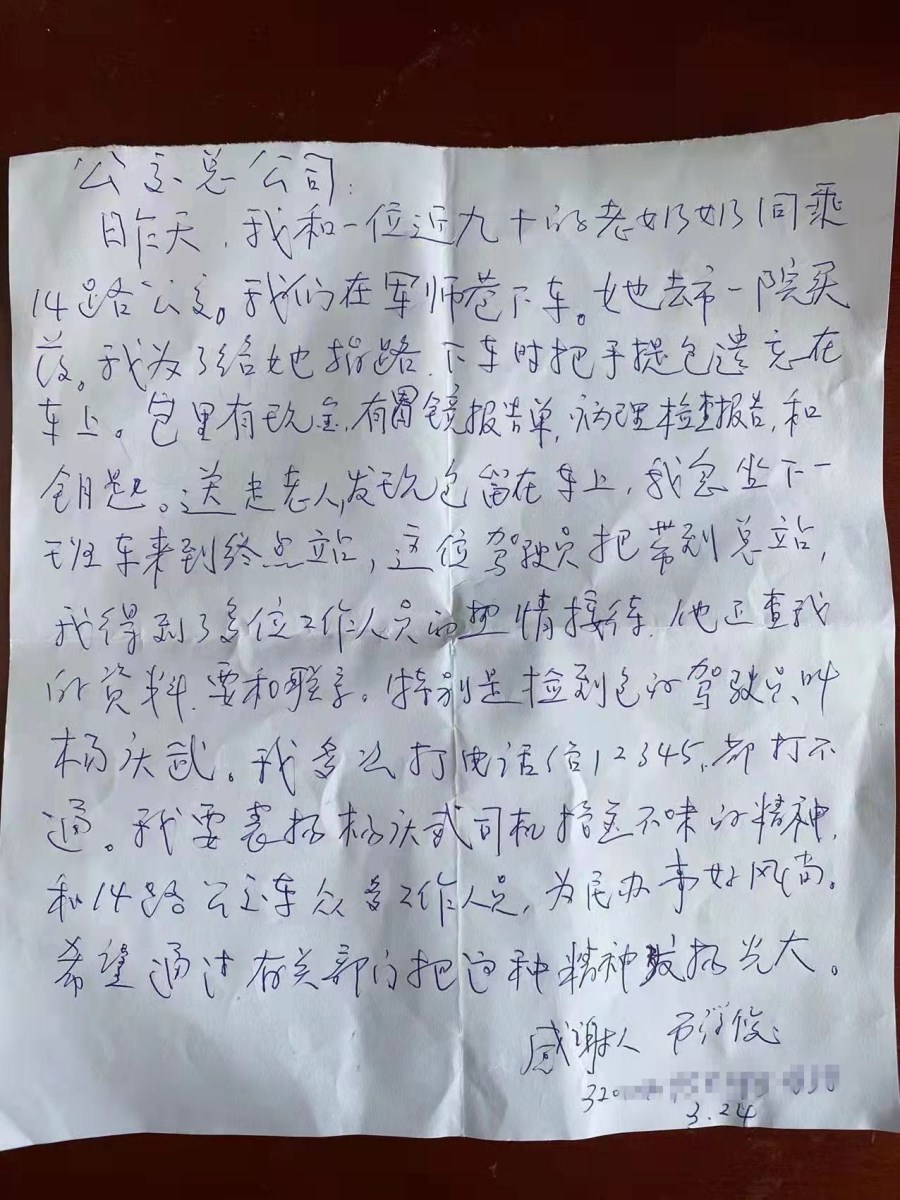 公交总公司:
昨天,我和一位近九十的老奶奶同乘
14路公交。我们在军师巷下车。她去市一院买
药。我为了给她指路,下车时把手提包遗忘在
车上。包里有现金,有胃镜报告单,病理检查报告,和
钥匙。送走老人,发现包留在车上,我忽坐下一
班车来到终点站,这位驾驶员把带到总站,
我得到了多位工作人员的热情接待。他正查我
的资料,要和联系。特别是捡到包的驾驶员叫
杨庆武。我多次打电话信12345,都打不
通。我要表扬杨庆武司机拾金不昧的精神,
和14路公交车众多工作人员,为民办事好风尚。
希望通过有关部门把这种精神发扬光大。
感谢人
320
3.24